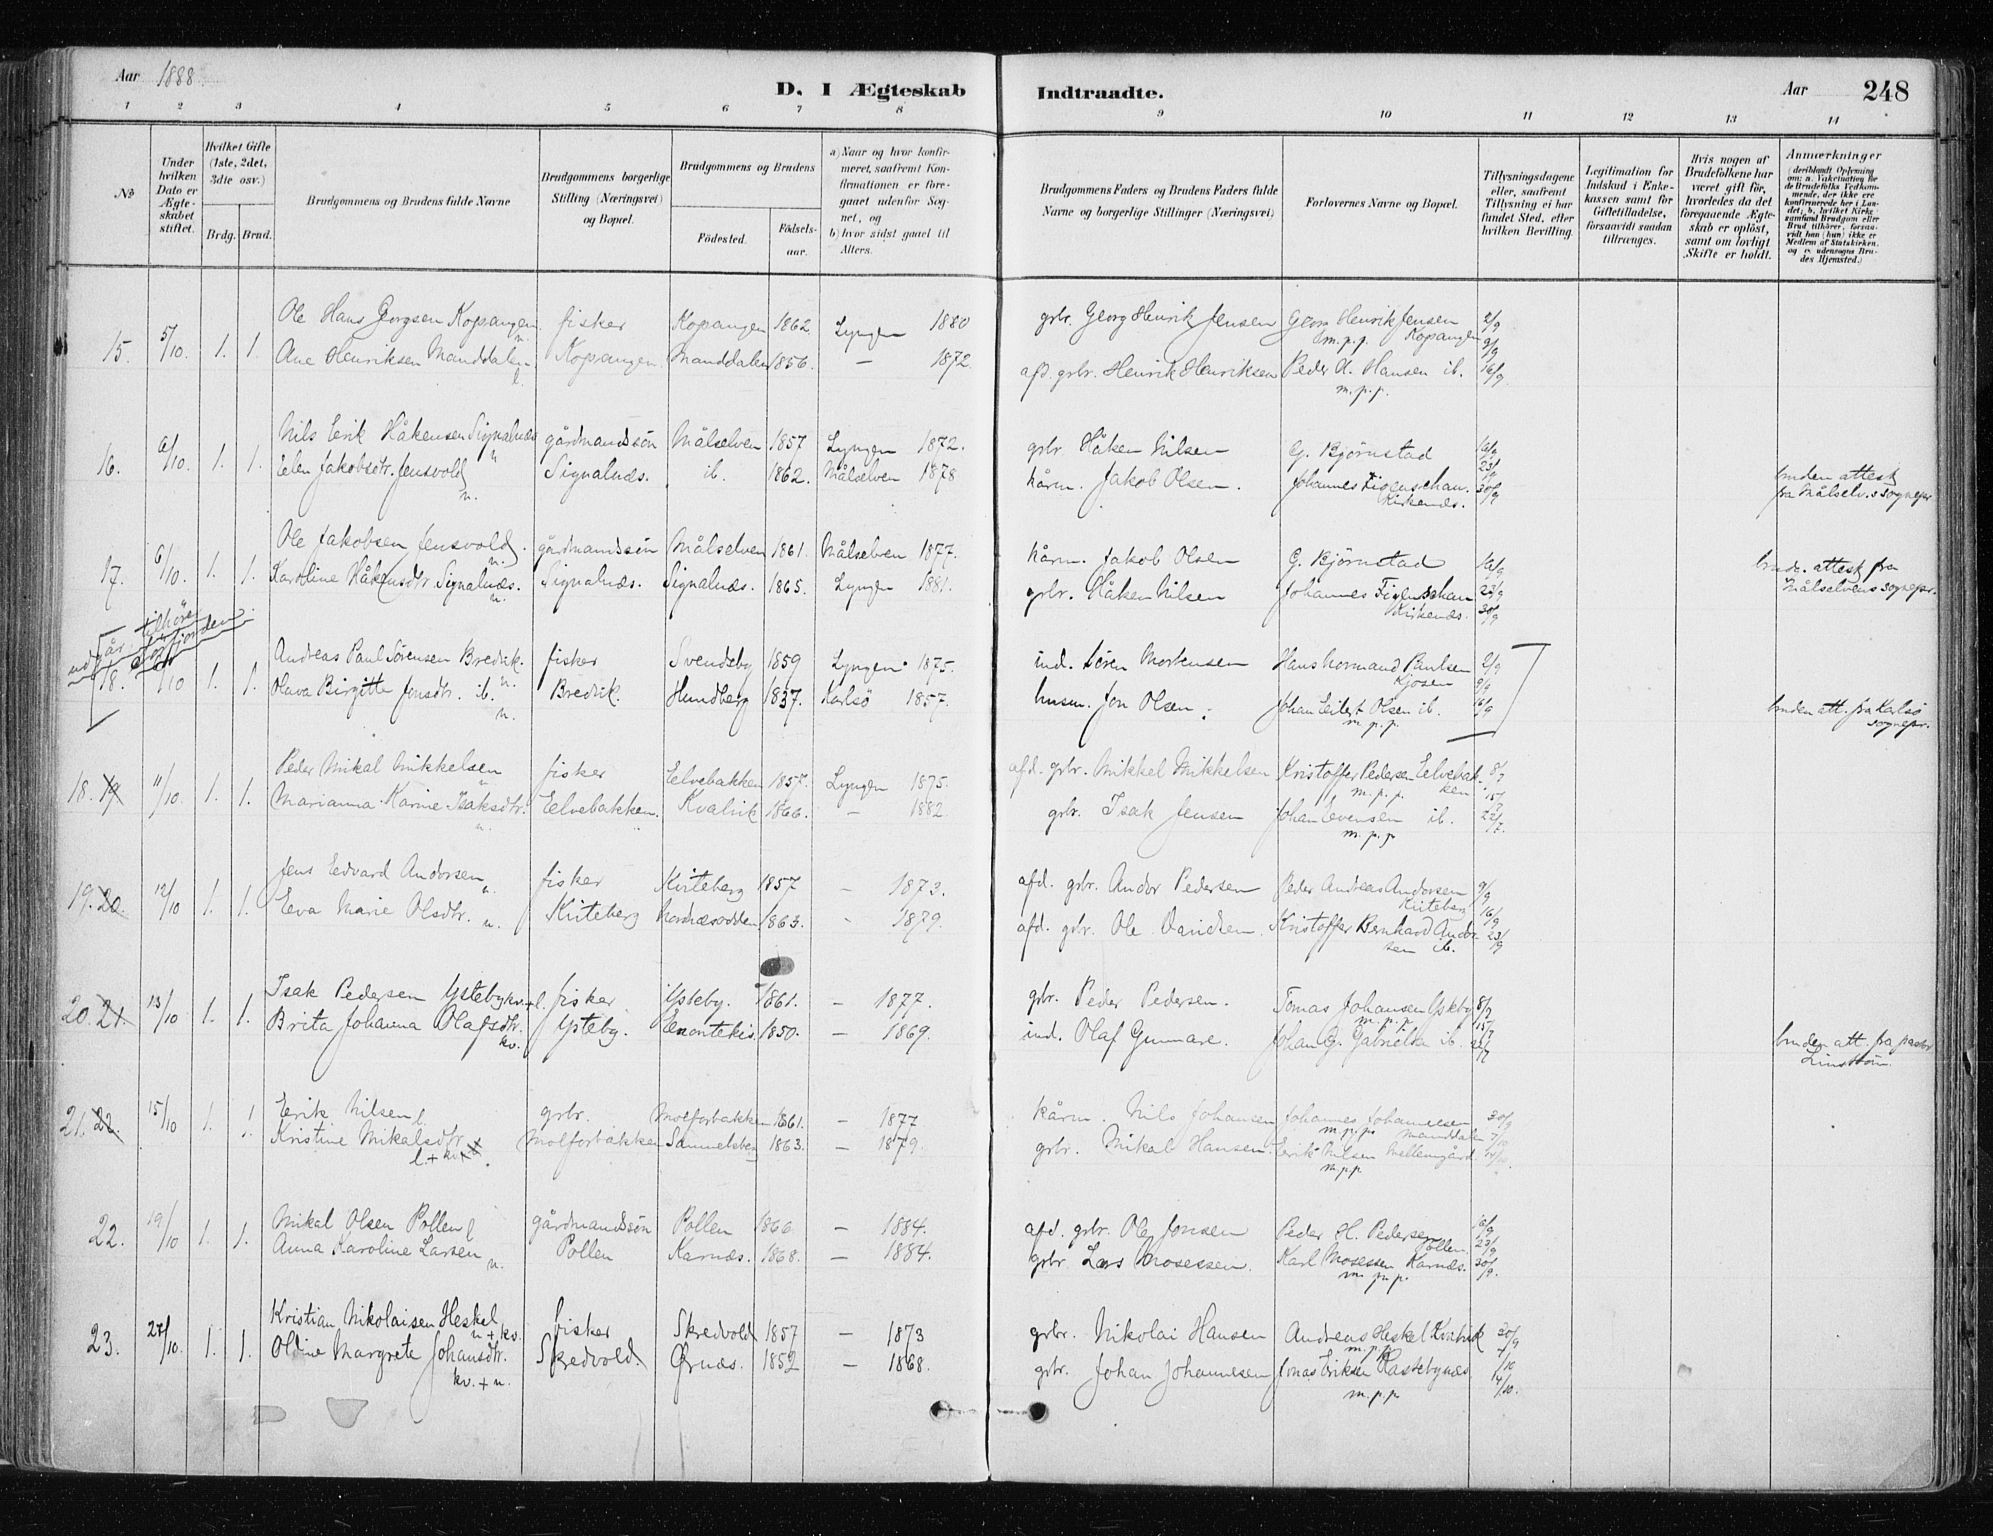 Aar 1888.
D. I Ægteskab Indtraadte.
Aar 248
1 2 3 4 5 6 7 8 9 10 11 12 13 14
No
Under hvilken Dato er Ægteskabet stiftet.
Hvilket Gifte (1ste, 2det, 3die osv.)
Brdg. Brud.
Brudgommens og Brudens fulde Navne
Brudgommens borgerlige Stilling (Næringsvei) og Bopæl.
Brudgommens og Brudens
Födested. Födselsaar.
a) Naar og hvor konfirmeret, saafremt Konfirmationen er foregaaet udenfor Sognet, og
b) hvor sidst gaaet til Alters.
Brudgommens Faders og Brudens Faders fulde Navne og borgerlige Stillinger (Næringsvei)
Forlovernes Navne og Bopæl.
Tillysningsdagene eller, saafremt Tillysning ei har fundet Sted, efter hvilken Bevilling.
Legitimation for Indskud i Enkekassen samt for Giftetilladelse, forsaavidt saadan tiltrænges.
Hvis nogen af Brudefolkene har været gift för, hvorledes da det foregaaende Ægteskab er oplöst, samt om lovligt Skifte er holdt.
Anmærkninger (deriblandt Oplysning om: a. Vakcination for de Brudefolks Vedkommende, der ikke ere konfirmerede her i Landet; b. hvilket Kirkesamfund Brudgom eller Brud tilhörer, forsaavidt han (hun) ikke er Medlem af Statskirken, og c. udensogns Brudes Hjemsted.)
Ole Hans Georgsen Kopangen n. fisker Kopangen 1862 Lyngen 1880 grbr. Georg Henrik Jensen Georg Henrik Jensen Kopangen m.p.p. 2/9
15. 5/10. 1. 1. Ane Henriksen Manddalen l. Kopangen Manddalen 1856. — 1872. afd. grbr. Henrik Henriksen Peder A. Hansen ib. m.p.p. 9/9 16/9
Nils Erik Håkensen Signalnæs n gårdmandssön Målselven 1857 Lyngen 1872. grbr Håken Nilsen G. Bjørnstad 16/9
16. 6/10. 1. 1. Elen Jakobsdtr. Jensvold n. Signalnæs. ib. 1862. Målselven 1878 kårm. Jakob Olsen. Johannes Figenschau. Kirkenæs. 23/9 30/9 bruden attest fra Målselv.s sognepr
Ole Jakobsen Jensvold n. gårdmandssön Målselven 1861. Målselven 1877. kårm. Jakob Olsen G. Bjørnstad 16/9
17. 6/10. 1. 1. Karoline Håkensdtr Signalnæs. n. Signalnæs. Signalnæs. 1865. Lyngen 1881. grbr. Håken Nilsen Johannes Figenschau Kirkenæs. 23/9 30/9 brudg. attest fra Målselvens sognepr.
udgår tilhörer Sörfjorden
Andreas Paul Sörensen Bredvik. n. fisker Svendsby 1859 Lyngen 1875. ind. Sören Mortensen Hans Normand Paulsen Kjosen 2/9
18. /10 1. 1. Olava Birgitte Jonsdtr. ib. n. Bredvik. Hundberg 1837. Karlsö 1857. husm. Jon Olsen. Johan Eilert Olsen ib. m.p.p. 9/9 16/9 bruden att. fra Karlsö sognepr.
Peder Mikal Mikkelsen n fisker Eelvebakken 1857. Lyngen 1875. afd. grbr. Mikkel Mikkelsen Kristoffer Pedersen Eelvebakken m.p.p. 8/7
18. 19 11/10. 1. 1. Marianna Karine Isaksdtr. n Eelvebakken. Kvalvik 1866. — 1882. grbr. Isak Jensen Johan Evensen ib. m.p.p 15/7 22/7.
Jens Eedvard Andorsen n. fisker Kviteberg 1857 — 1873. afd. grbr. Andor Pedersen Peder Andreas Andorsen Kviteberg 9/9
19. 20. 12/10 1. 1. Eeva Marie Olsdtr. n. Kviteberg Nordnæsodden 1863. — 1879. afd. grbr. Ole Davidsen. Kristoffer Bernhard Andorsen ib. 16/9 23/9
Isak Pedersen Ysteby kv.+l. fisker Ysteby. 1861. — 1877. grbr. Peder Pedersen. Tomas Johansen Ysteby m.p.p. 8/7
20. 21. 13/10 1. 1. Brita Johanna Olafsdtr. kv. Ysteby. Eenontekis. 1850. — 1869. ind. Olaf Gunnare. Johan G. Gabrielsa ib. 15/7 22/7 bruden att. fra pastor
Eerik Nilsen l. grbr. Molforbakken 1861. — 1877 kårm. Nils Johansen Johannes Johannesen m.p.p. Manddalen 30/9
21. 22. 15/10 1. 1. Kristine Mikalsdtr. l.+kv. Molforbakken Samuelsberg 1863. — 1879. grbr. Mikal Hansen. Eerik Nilsen Mellemgård m.p.p. 7/10 14/10.
Mikal Olsen Pollen l gårdmandssön Pollen 1866. — 1884. afd. grbr. Ole Jonsen Peder H. Pedersen Pollen. 16/9
22. 19/10 1. 1. Anna Karoline Larsen n. Pollen Karnæs. 1868. — 1884. grbr. Lars Mosessen. Karl Mosessen Karnæs. m.p.p. 23/9 30/9.
Kristian Nikolaisen Heskel n+kv. fisker Skredvold 1857 — 1873 grbr. Nikolai Hansen Andreas Heskel Kvalvik m.p.p. 30/9
23. 27/10. 1. 1. Oldine Margrete Johansdtr. kv.+n. Skredvold. Ørnæs. 1852 — 1868. grbr. Johan Johannesen Jonas Eriksen Rastebynæs m.p.p 7/10 14/10.